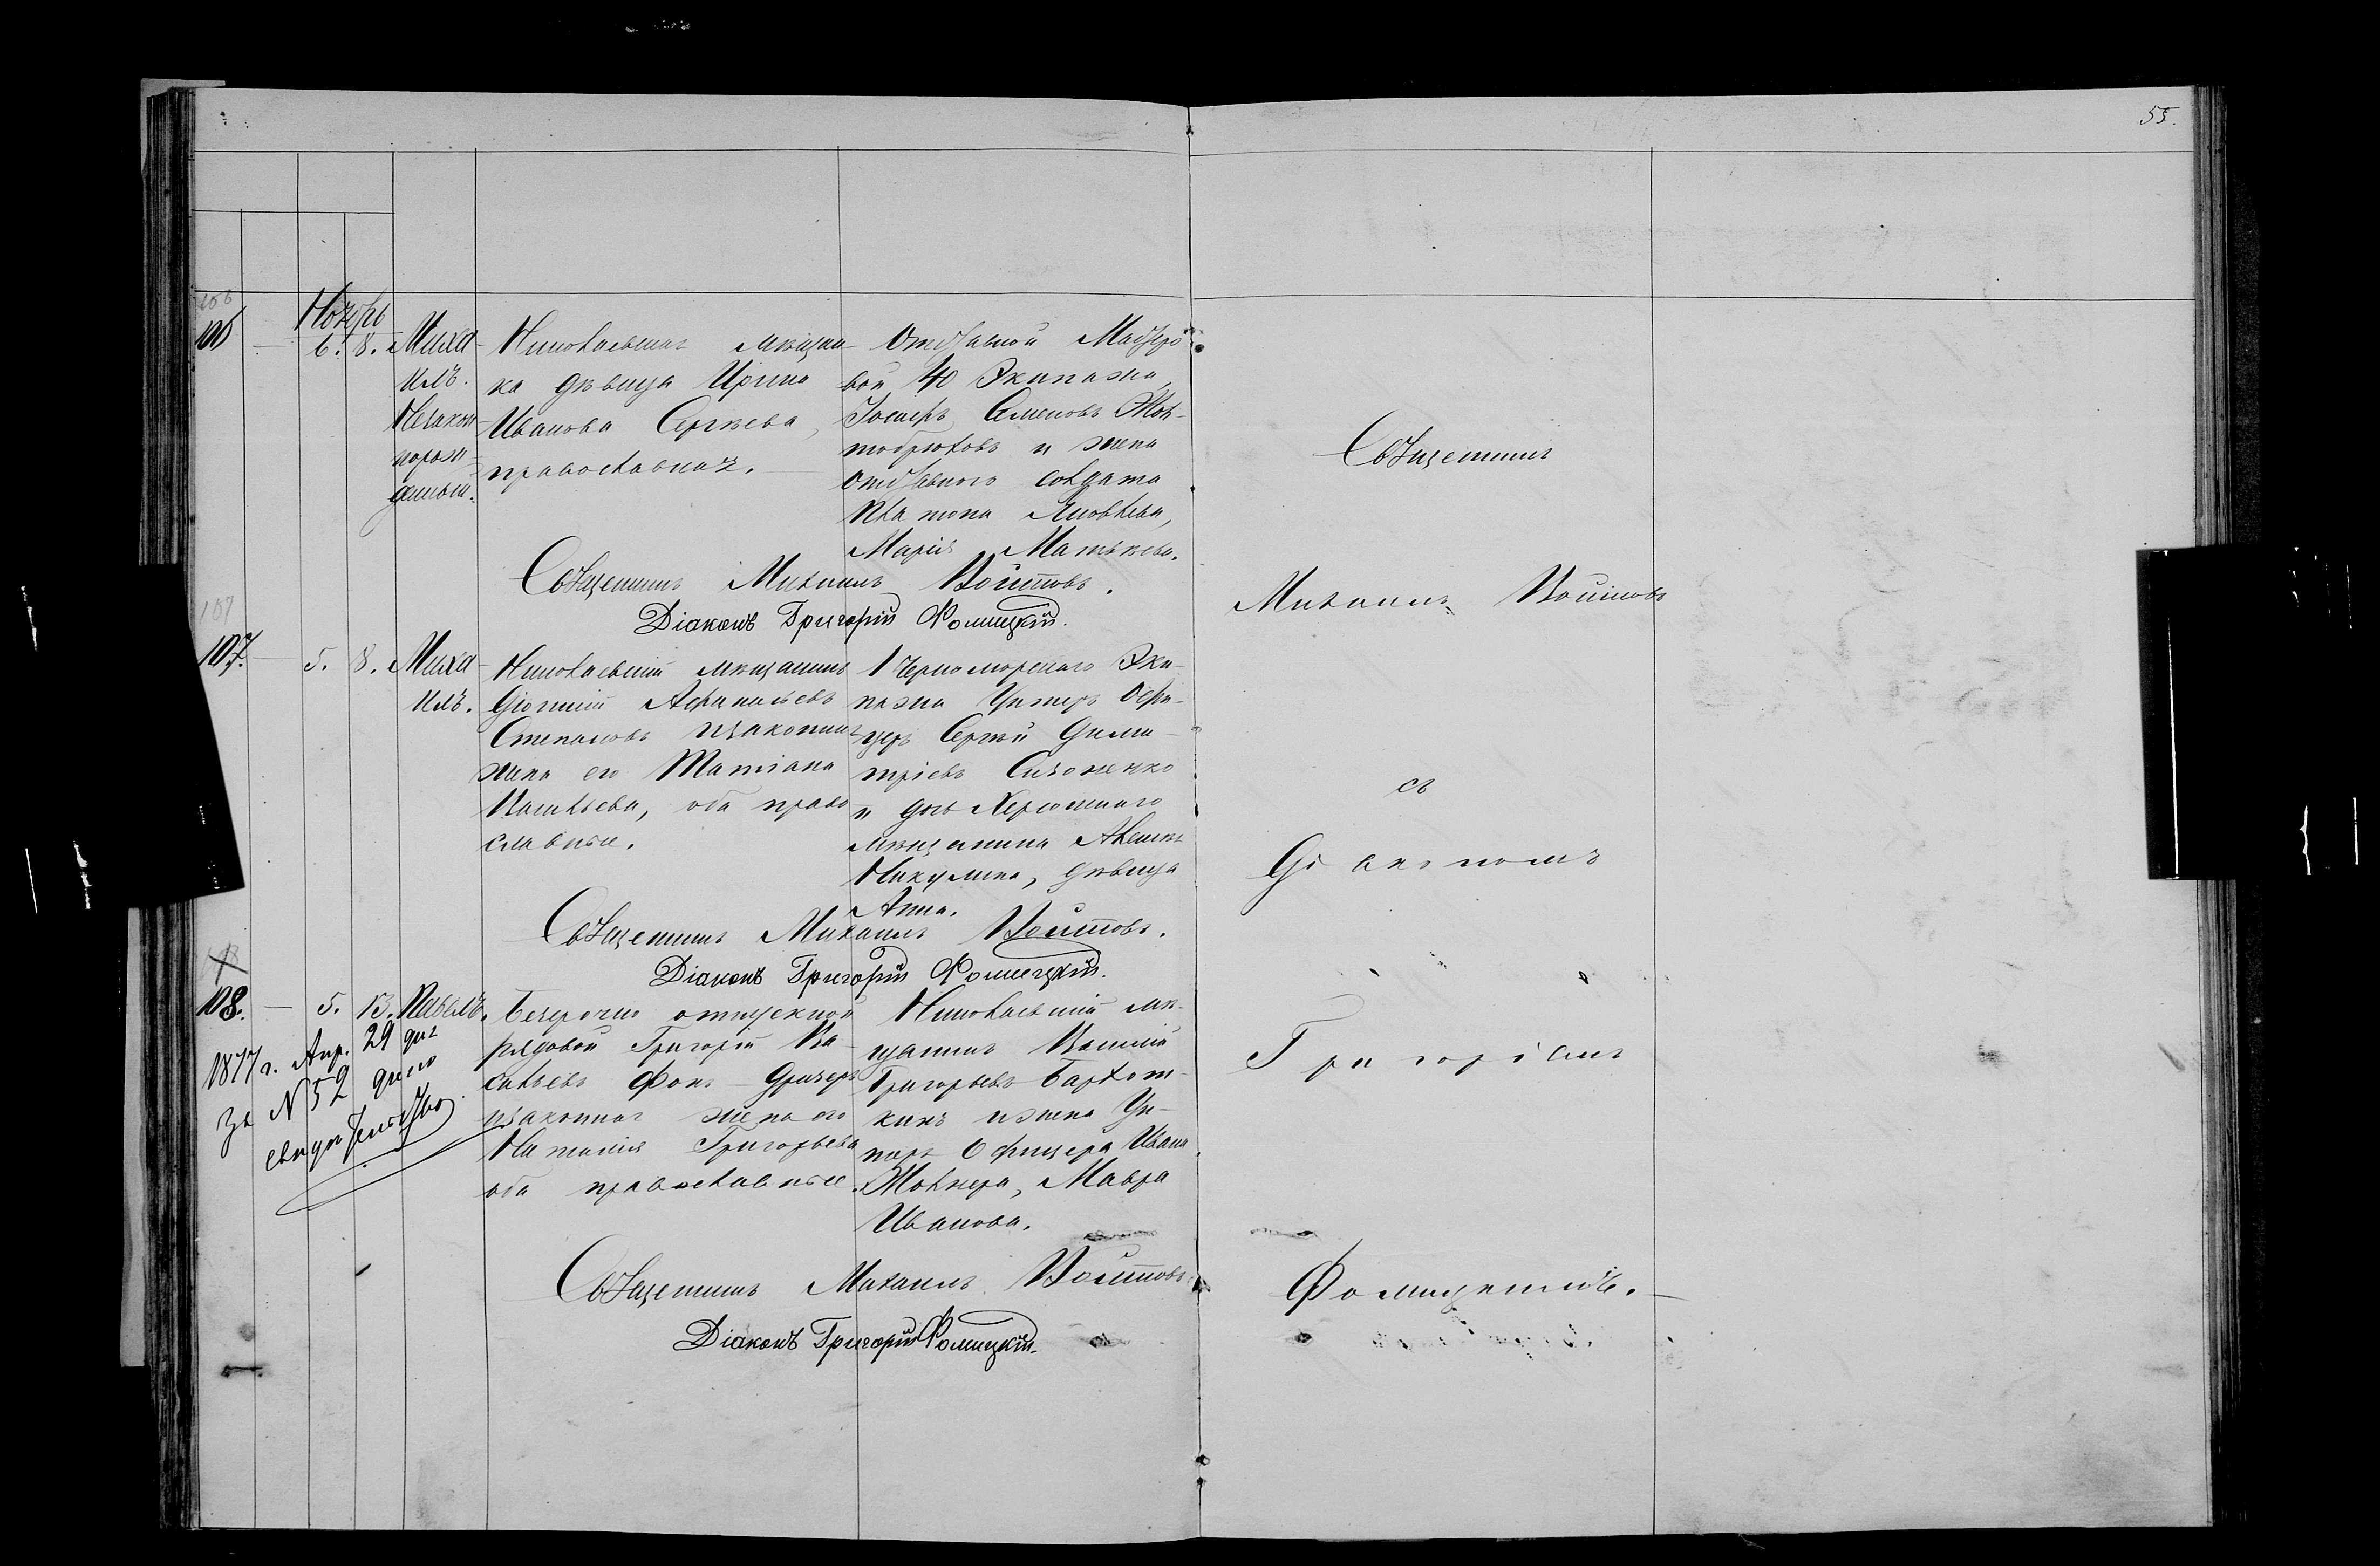 55.
106
Ноябрь
106 — 6. 8. Миха-
илъ.
Незакон-
норож-
денный.
Николаевская мѣщан-
ка дѣвица Ирина
Иванова Сергѣева,
православная.
Отставной Мастеро-
вой 40 Экипажа,
Іосифъ Семеновъ Жол-
тобрюховъ и жена
отставного солдата
Платона Яковлева,
Марія Матвѣева.
Священникъ Михаилъ Войтовъ.
Діаконъ Григорій Фомицкій.
107
107. — 5. 8. Миха-
илъ.
Николаевскій мѣщанинъ
Діонисій Афанасьевъ
Степановъ и законная
жена его Татіана
Васильева, оба право-
славные.
1 Черноморскаго Эки-
пажа Унтеръ Офи-
церъ Сергѣй Дими-
тріевъ Сизоненко
и дочь Херсонскаго
мѣщанина Алексѣя
Никулина, дѣвица
Анна.
Священникъ Михаилъ Войтовъ.
Діаконъ Григорій Фомицкій.
108. — 5. 13. Павелъ.
1877 г. Апр. 29 дня
за N 52 дано
свидетельство
Безсрочно отпускной
рядовой Григорій Ва-
сильевъ Фонъ-Дризеръ
и законная жена его
Наталія Григорьева
оба православные.
Николаевскій мѣ-
щанинъ Василій
Григорьевъ Бархот-
кинъ и жена Ун-
теръ Офицера Ивана
Жолнера, Мавра
Иванова.
Священникъ Михаилъ Войтовъ
Діаконъ Григорій Фомицкій.
Священникъ
Михаилъ Войтовъ
съ
Діакономъ
Григоріемъ
Фомицкимъ.—